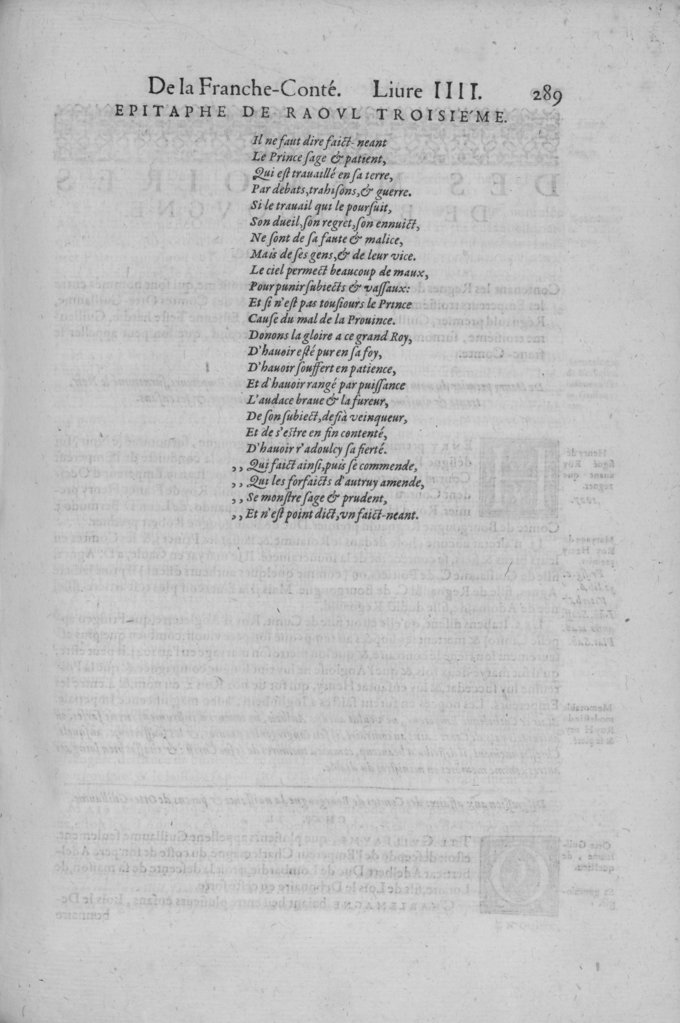 De la Franche-Conté. Liure IIII. 289
EPITAPHE DE RAOVL TROISIÉME.
Il ne faut dire faict-neant
Le Prince sage & patient,
Qui est trauaillé en sa terre,
Par debats, trahisons, & guerre.
Si le trauail qui le poursuit,
Son dueil, son regret, son ennuict,
Ne sont de sa faute & malice,
Mais de ses gens, & de leur vice.
Le ciel permect beaucoup de maux,
Pour punir subiects & vassaux:
Et si n'est pas tousiours le Prince
Cause du mal de la Prouince.
Donons la gloire a ce grand Roy,
D'hauoir esté pur en sa foy,
D'hauoir souffert en patience,
Et d'hauoir rangé par puissance
L'audace braue & la fureur,
De son subiect, desià veinqueur,
Et de s'estre en fin contenté,
D'hauoir r'adoulcy sa fierté.
,, Qui faict ainsi, puis se commende,
,, Qui les forfaicts d'autruy amende,
,, Se monstre sage & prudent,
,, Et n'est point dict, vn faict-neant.